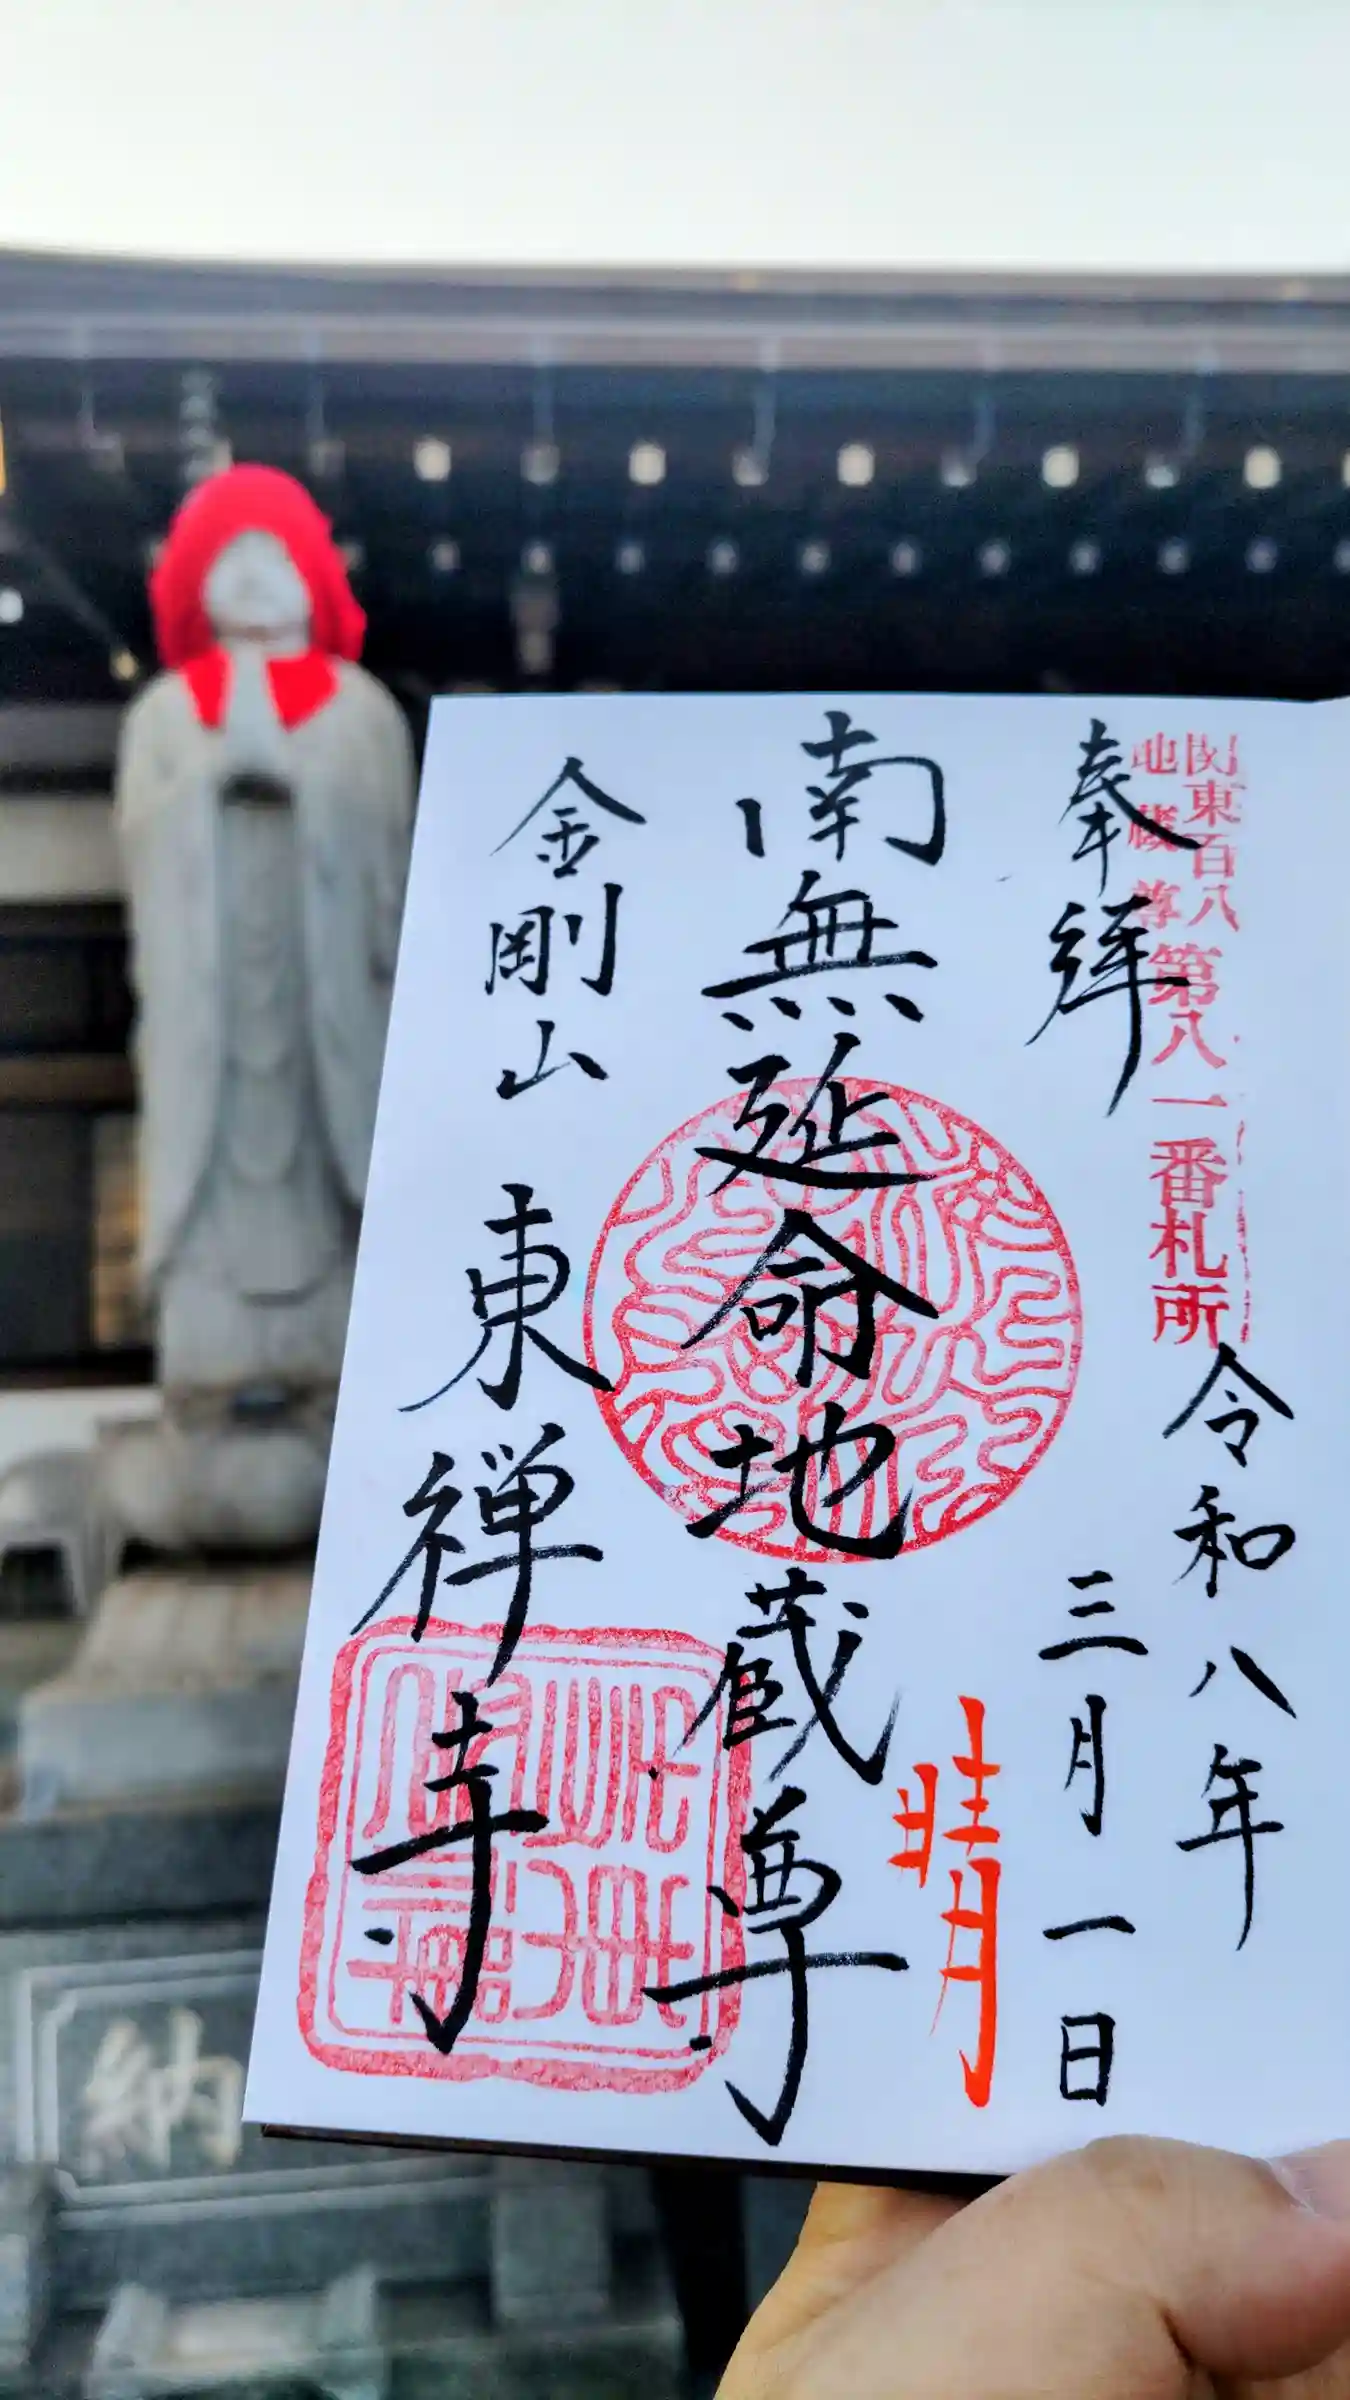 関東百八
地蔵尊
第八一番札所
奉拝
令和八年
三月一日
晴
南無延命地蔵尊
金剛山
東禅寺
納